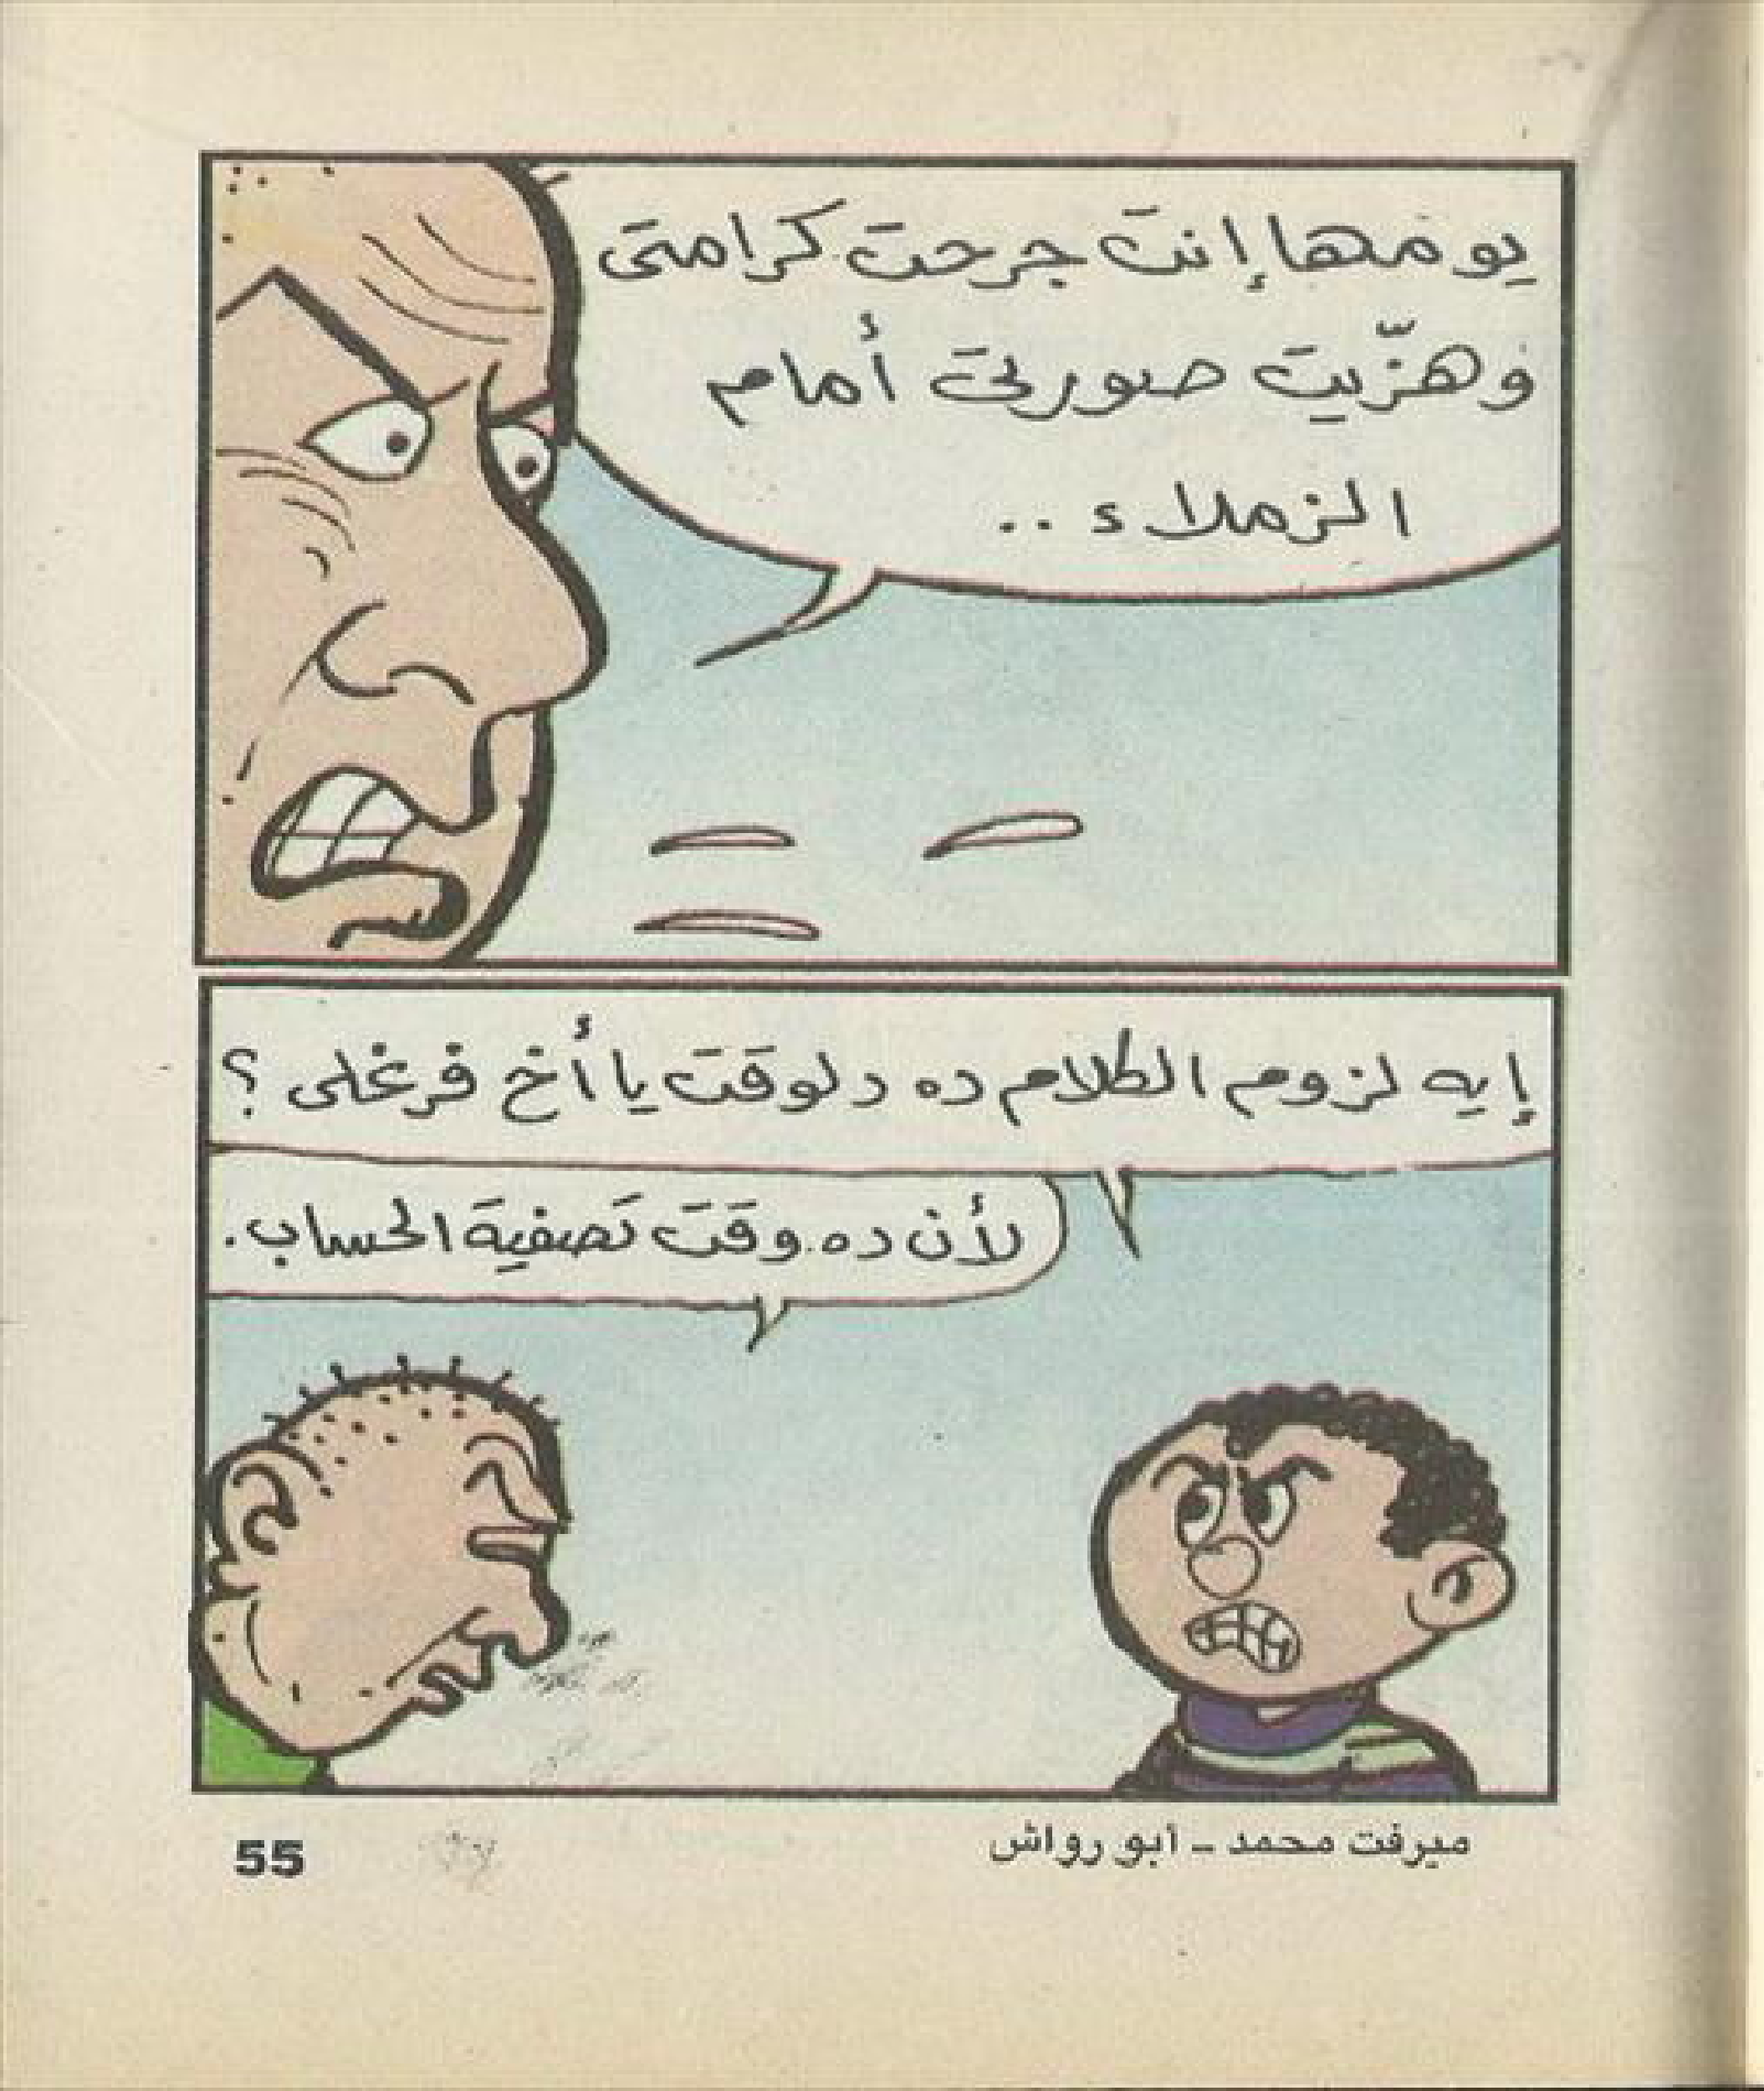 يومها إنت جرحت كرامتى
وهزّيت صورتى أمام
الزملاء ..
إيه لزوم الكلام ده دلوقت يا أخ فرغلى ؟
لأن ده وقت تصفية الحساب .
ميرفت محمد ـ أبو رواش
55